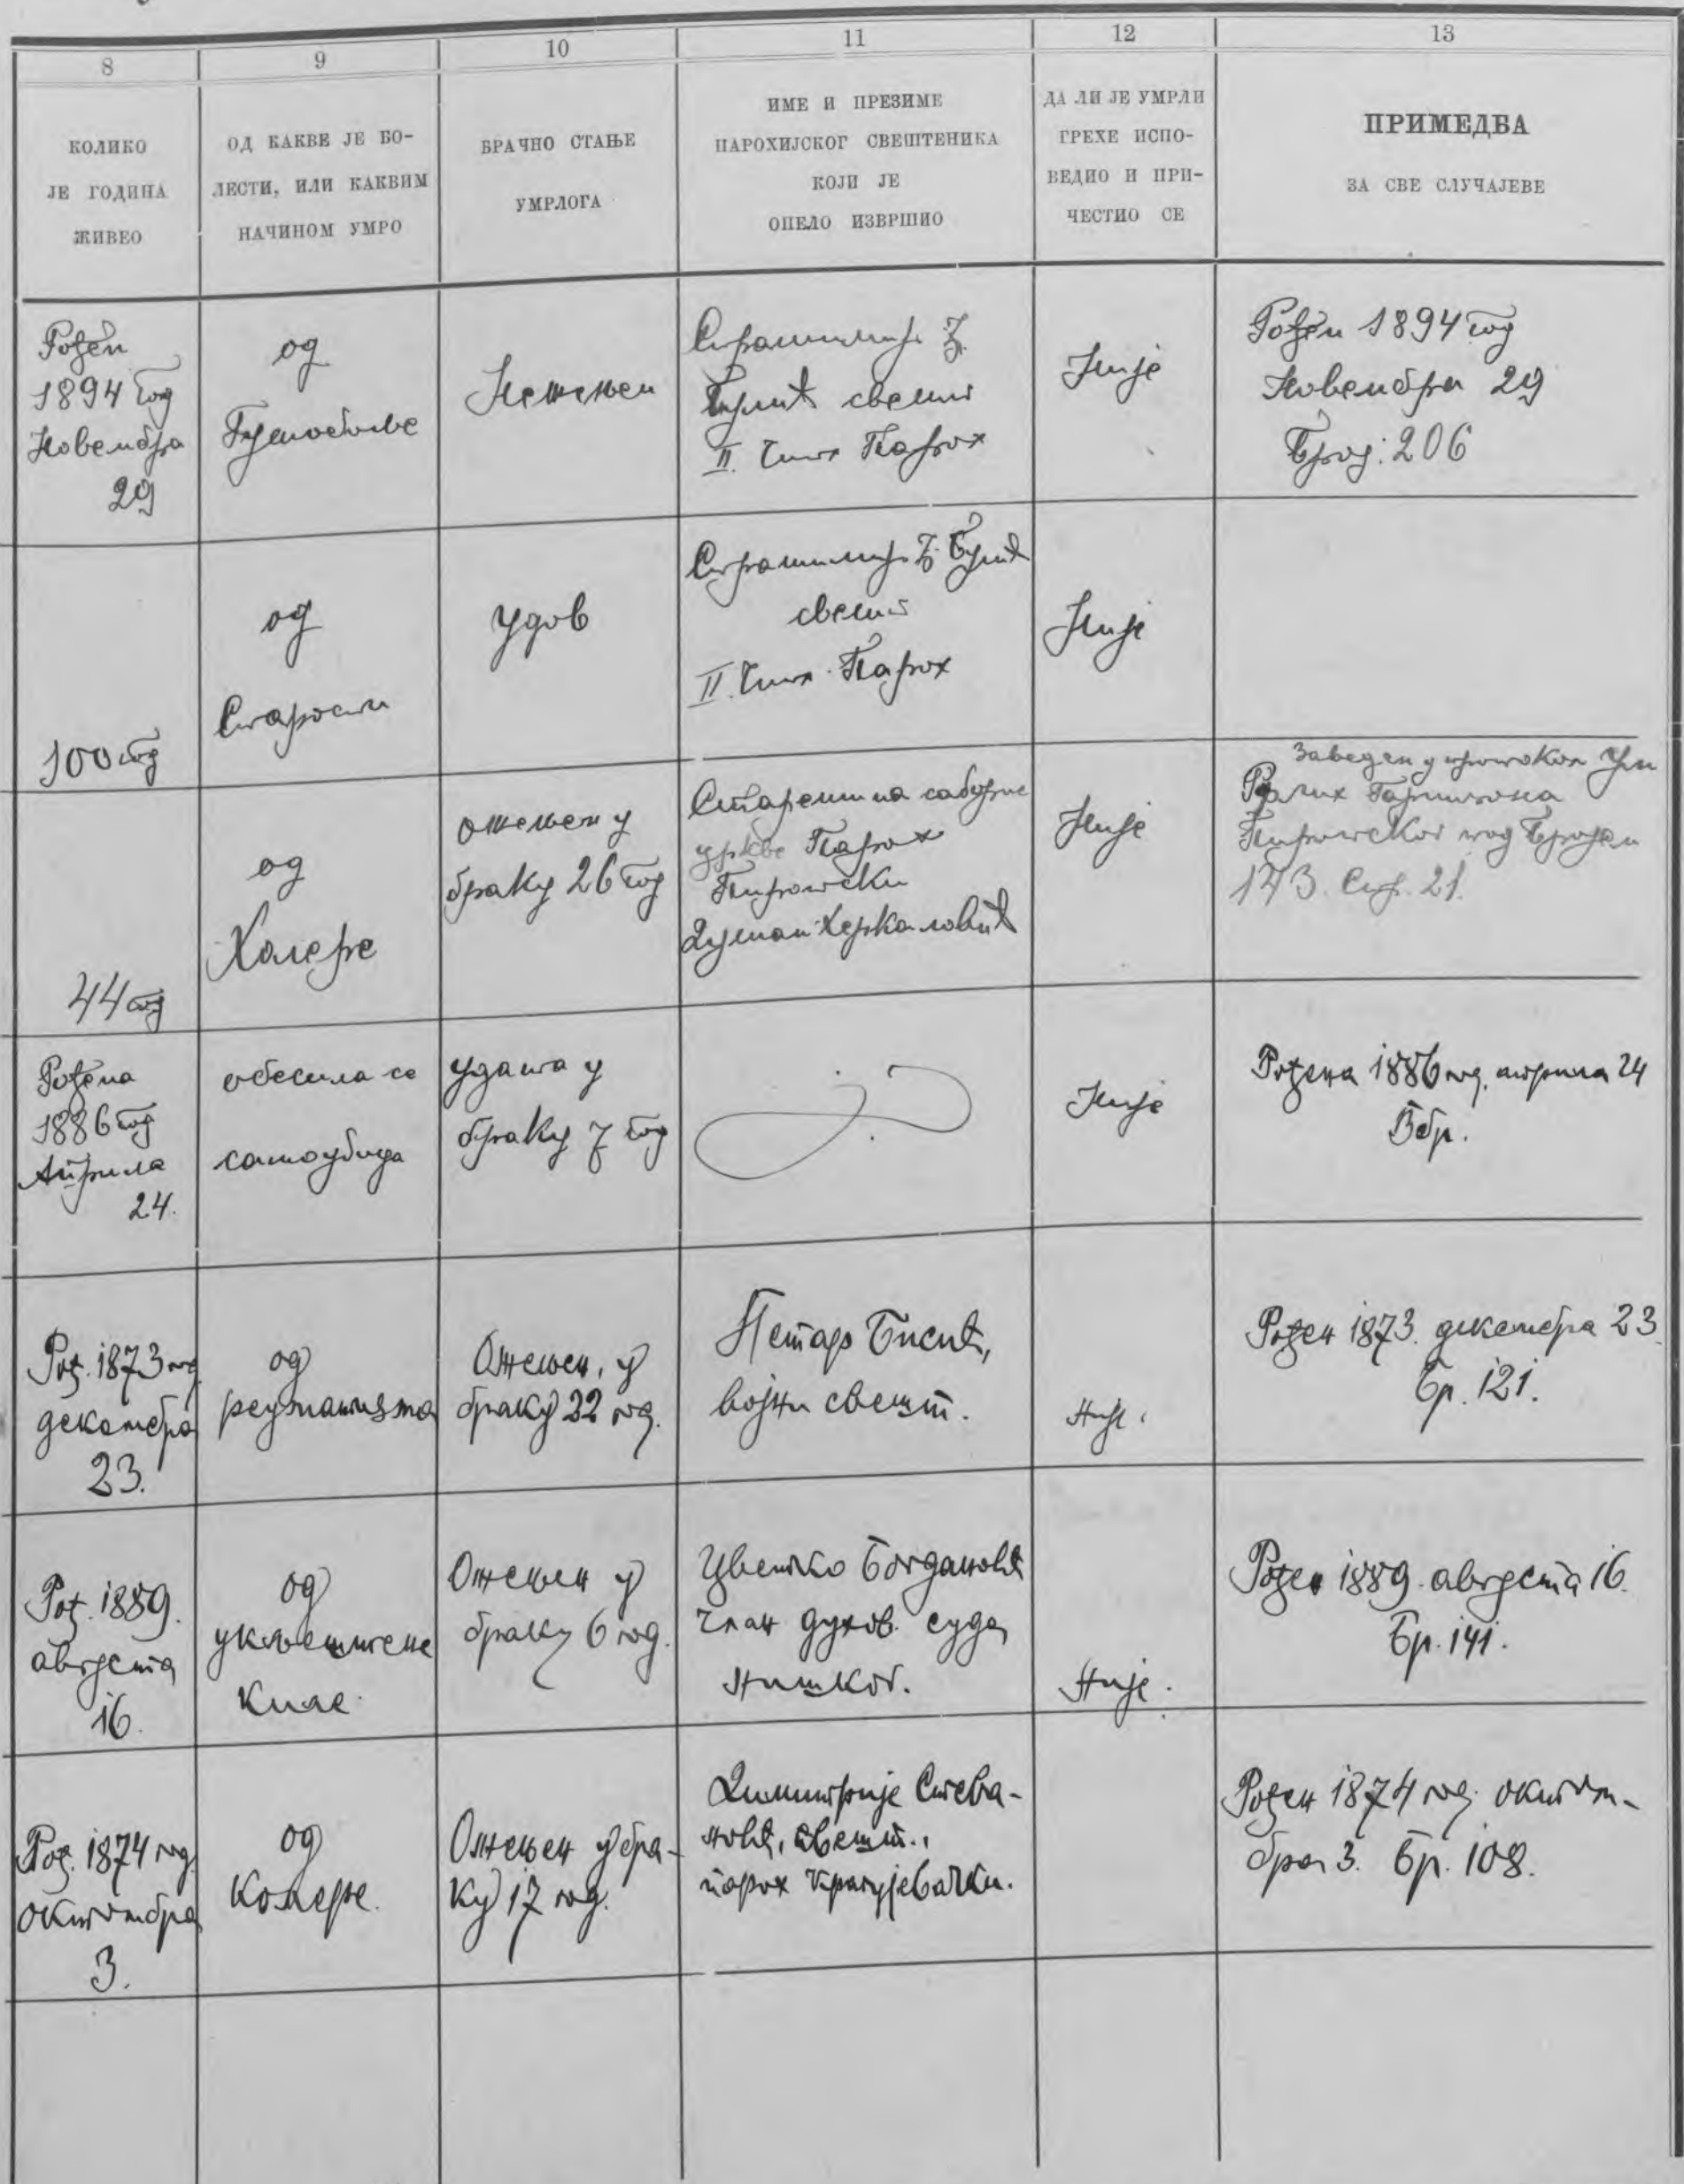 8
9
10
11
12
13
КОЛИКО
ЈЕ ГОДИНА
ЖИВЕО
ОД КАКВЕ ЈЕ БО-
ЛЕСТИ, ИЛИ КАКВИМ
НАЧИНОМ УМРО
БРАЧНО СТАЊЕ
УМРЛОГА
ИМЕ И ПРЕЗИМЕ
ПАРОХИЈСКОГ СВЕШТЕНИКА
КОЈИ ЈЕ
ОПЕЛО ИЗВРШИО
ДА ЛИ ЈЕ УМРЛИ
ГРЕХЕ ИСПО-
ВЕДИО И ПРИ-
ЧЕСТИО СЕ
ПРИМЕДБА
ЗА СВЕ СЛУЧАЈЕВЕ
Рођен
1894 год
Новембра
29
од
Грудобоље
Нежењен
Страшимир Ђ.
свешт
II. Парох
Није
Рођен 1894 год
Новембра 29
Број: 206
100 год
од
Старости
Удов
Страшимир Ђ.
свешт
II. Парох
Није
44 год
од
Холере
ожењен у
браку 26 год
Старешина саборне
цркве Парох
Пиротски
Душан
Није
Заведен у протокол Ум
Гарнизона
Пиротског под Бројем
173. Стр. 21.
Рођена
1886 год
Априла
24.
обесила се
самоубица
удата у
браку 7 год
Није
Рођена 1886 год. априла 24
Рођ. 1873 год
декембра
23.
од
реуматизма
Ожењен, у
браку 22 год.
Петар
војни свешт.
Није.
Рођен 1873. декембра 23.
Бр. 121.
Рођ. 1889.
августа
16.
од
укљештене
киле.
Ожењен у
браку 6 год.
Цветко Богдановић
члан духов. суда
нишког.
Није.
Рођен 1889. августа 16.
Бр. 141.
Рођ. 1874 год.
октомбра
3.
од
Колере.
Ожењен у бра-
ку 17 год.
Димитрије Стева-
новић, свешт.,
парох крагујевачки.
Рођен 1874 год. октом-
бра 3. Бр. 108.